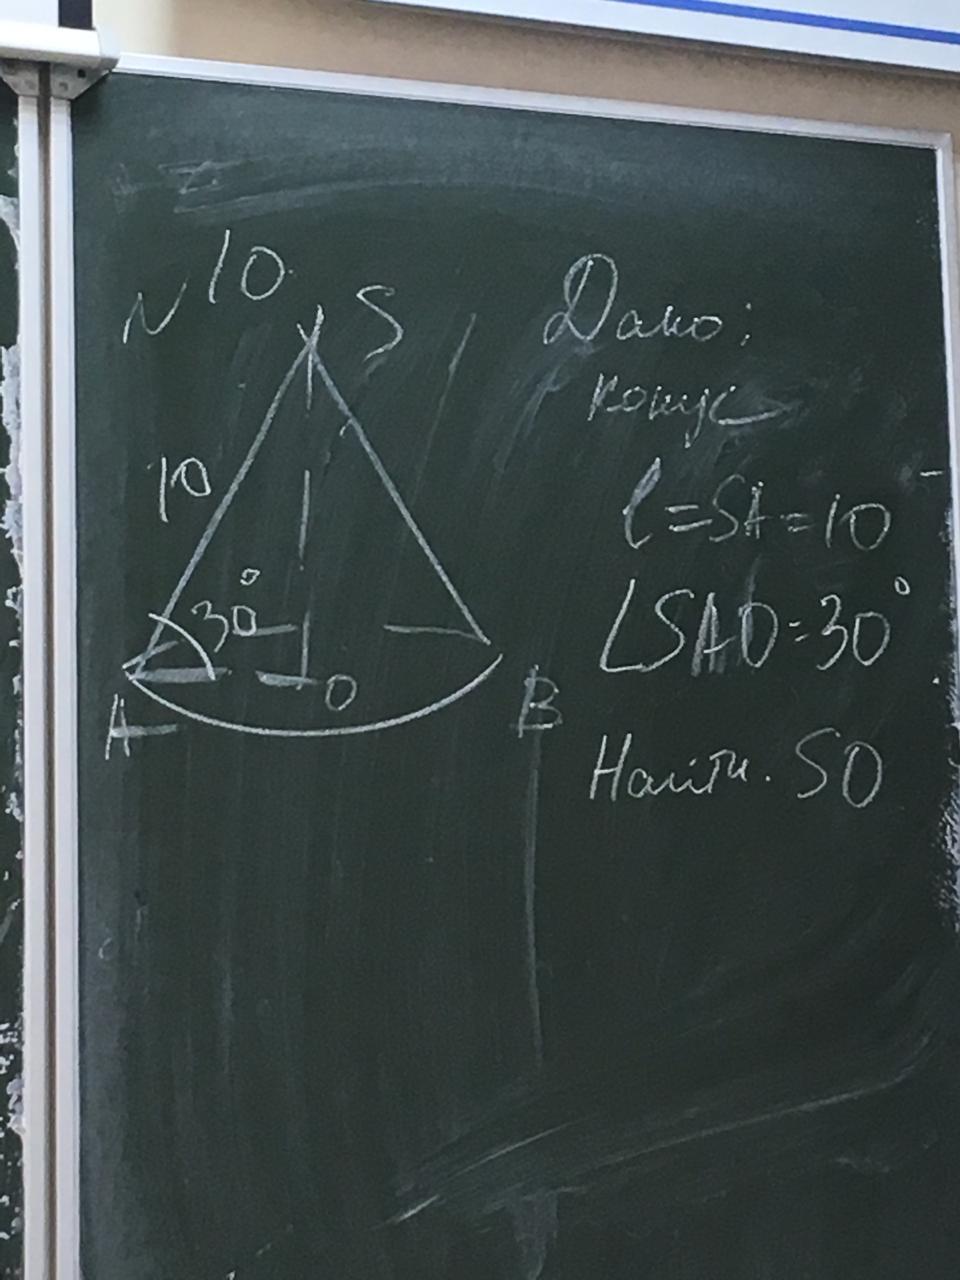 N 10
S
10
30°
A
O
B
Дано:
конус
l = SA = 10
∠SAO = 30°
Найти. SO